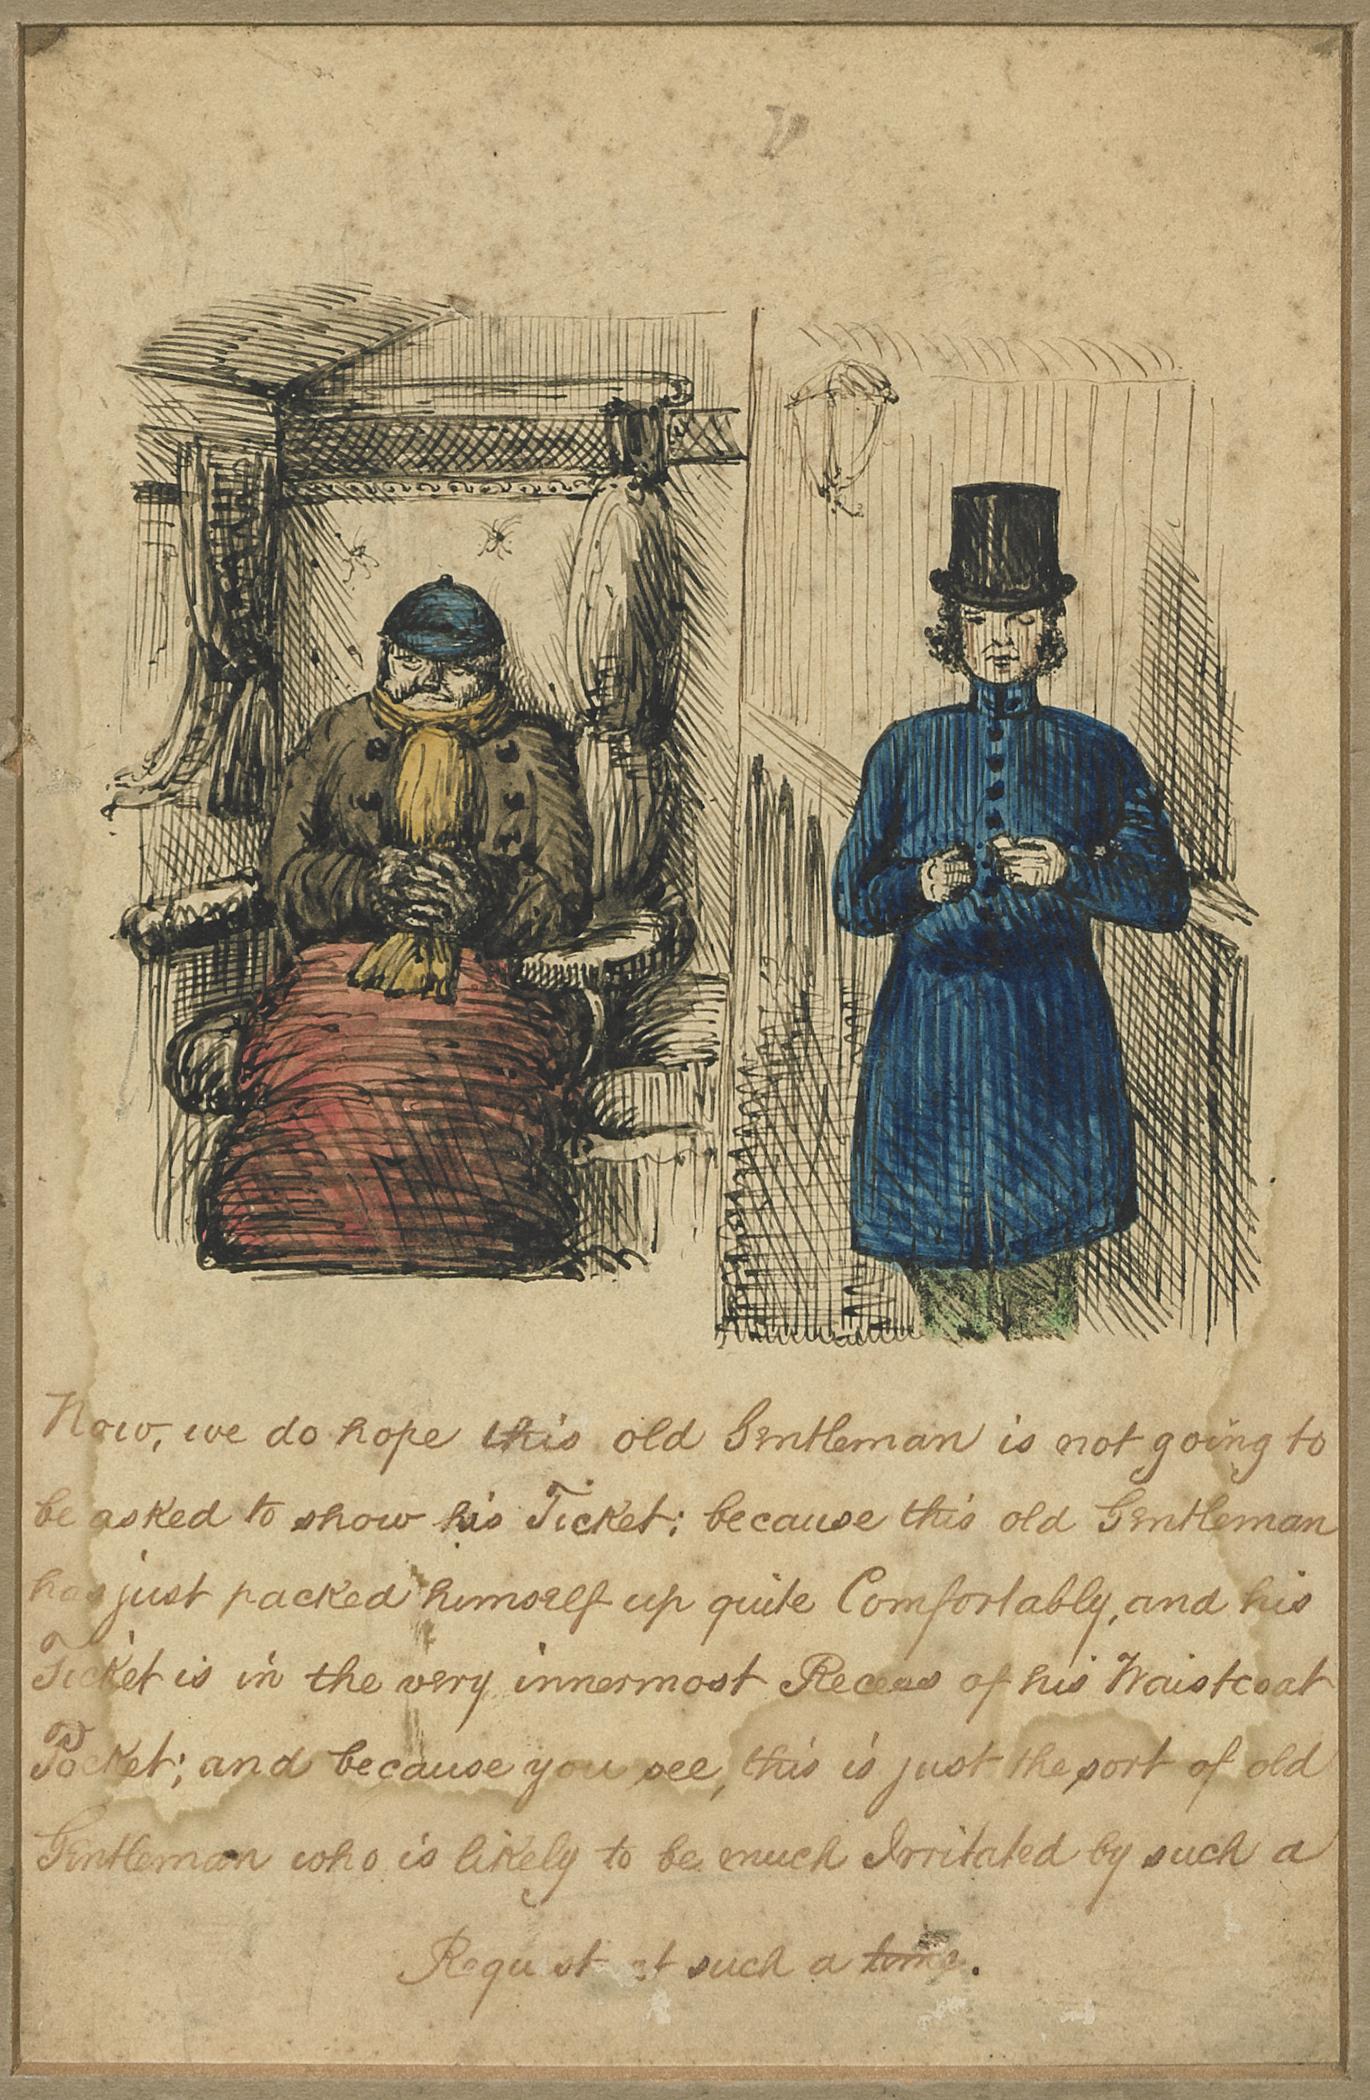 Now, we do hope this old Gentleman is not going to
be asked to show his Ticket; because this old Gentleman
has just packed himself up quite Comfortably, and his
Ticket is in the very innermost Recess of his Waistcoat
Pocket; and because you see, this is just the sort of old
Gentleman who is likely to be much Irritated by such a
Request at such a time.